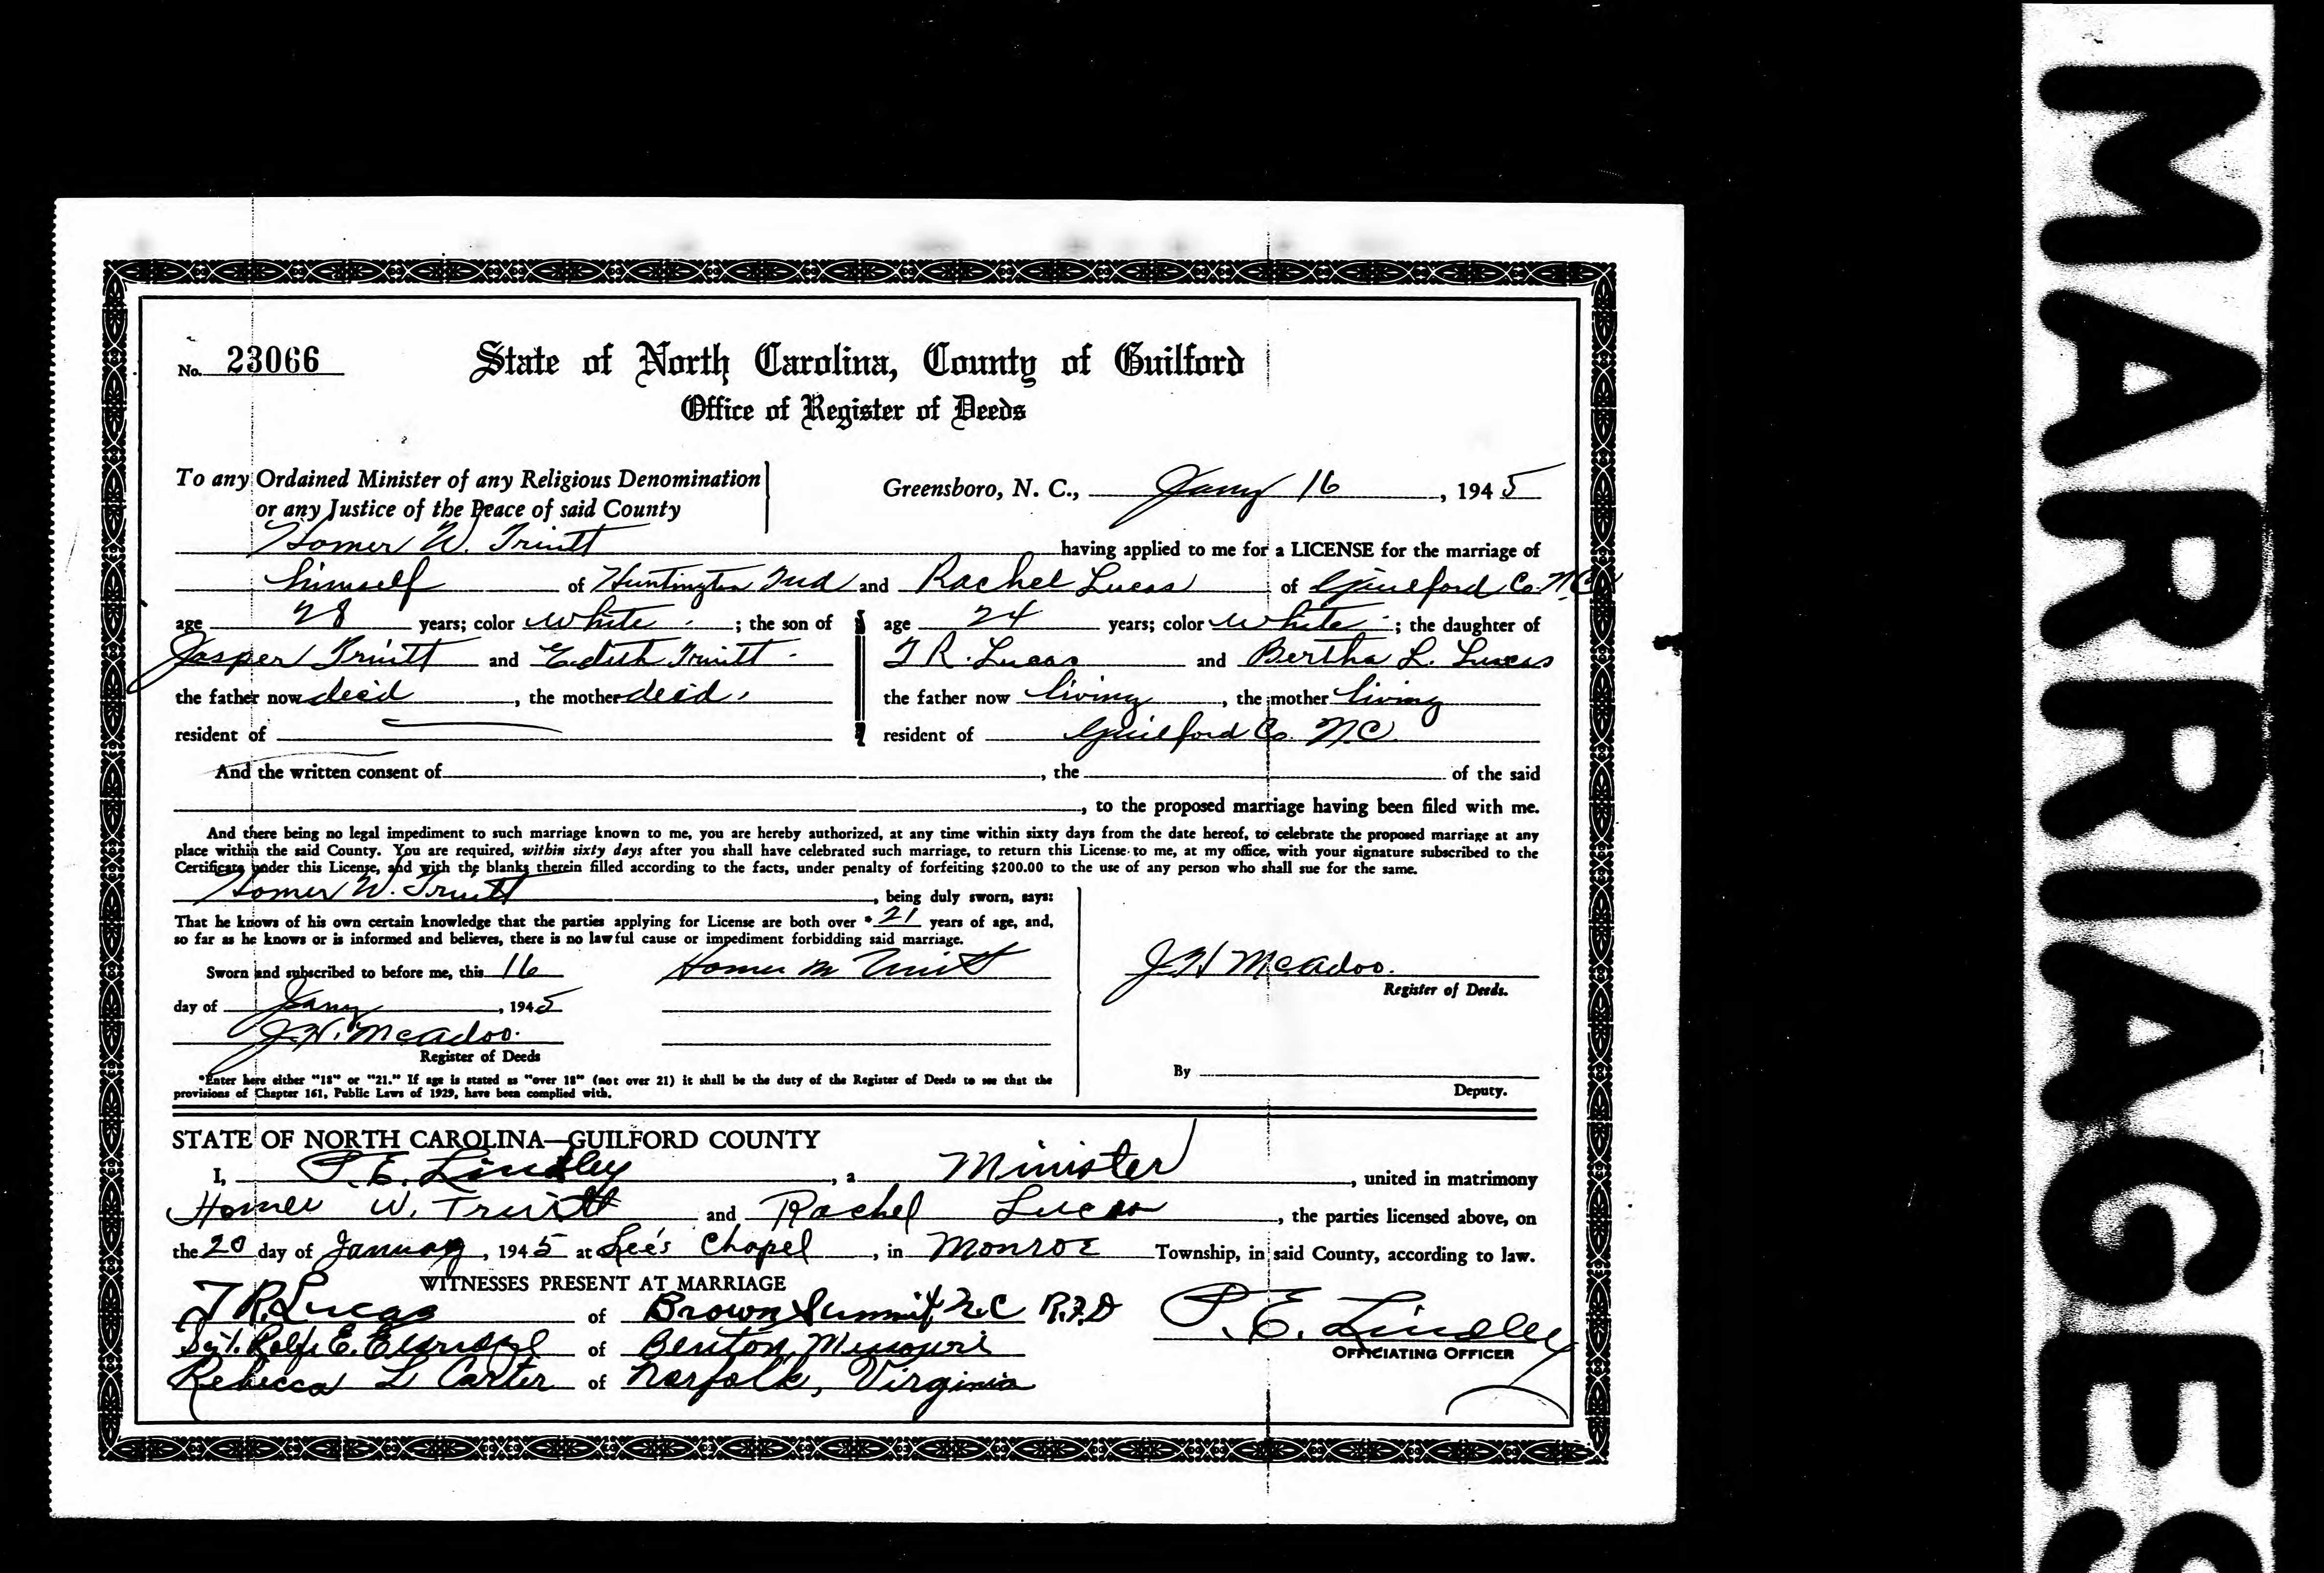 No. 23066
State of North Carolina, County of Guilford
Office of Register of Deeds
To any Ordained Minister of any Religious Denomination
or any Justice of the Peace of said County
Greensboro, N. C., Jany 16, 1945
Homer W. Truitt having applied to me for a LICENSE for the marriage of
himself of Huntington Ind and Rachel Lucas of Guilford Co. N.C.
age 28 years; color White; the son of
Jasper Truitt and Edith Truitt
the father now dead, the mother dead.
resident of
age 24 years; color White; the daughter of
T R. Lucas and Bertha L. Lucas
the father now living, the mother living
resident of Guilford Co. N.C.
And the written consent of , the of the said
, to the proposed marriage having been filed with me.
And there being no legal impediment to such marriage known to me, you are hereby authorized, at any time within sixty days from the date hereof, to celebrate the proposed marriage at any
place within the said County. You are required, within sixty days after you shall have celebrated such marriage, to return this License to me, at my office, with your signature subscribed to the
Certificate under this License, and with the blanks therein filled according to the facts, under penalty of forfeiting $200.00 to the use of any person who shall sue for the same.
Homer W. Truitt, being duly sworn, says:
That he knows of his own certain knowledge that the parties applying for License are both over *21 years of age, and,
so far as he knows or is informed and believes, there is no lawful cause or impediment forbidding said marriage.
Sworn and subscribed to before me, this 16
Homer W Truitt
day of Jany, 1945
J.H. McAdoo.
Register of Deeds
*Enter here either "18" or "21." If age is stated as "over 18" (not over 21) it shall be the duty of the Register of Deeds to see that the
provisions of Chapter 161, Public Laws of 1929, have been complied with.
J.H McAdoo.
Register of Deeds.
By
Deputy.
STATE OF NORTH CAROLINA—GUILFORD COUNTY
I, P.E. Lindley, a Minister, united in matrimony
Homer W. Truitt and Rachel Lucas, the parties licensed above, on
the 20 day of January, 1945 at Lee's Chapel, in Monroe Township, in said County, according to law.
WITNESSES PRESENT AT MARRIAGE
T R. Lucas of Brown Summit, N.C R.F.D
E. of Benton, Missouri
Rebecca L Carter of Norfolk, Virginia
P. E. Lindley
OFFICIATING OFFICER
MARRIAGES